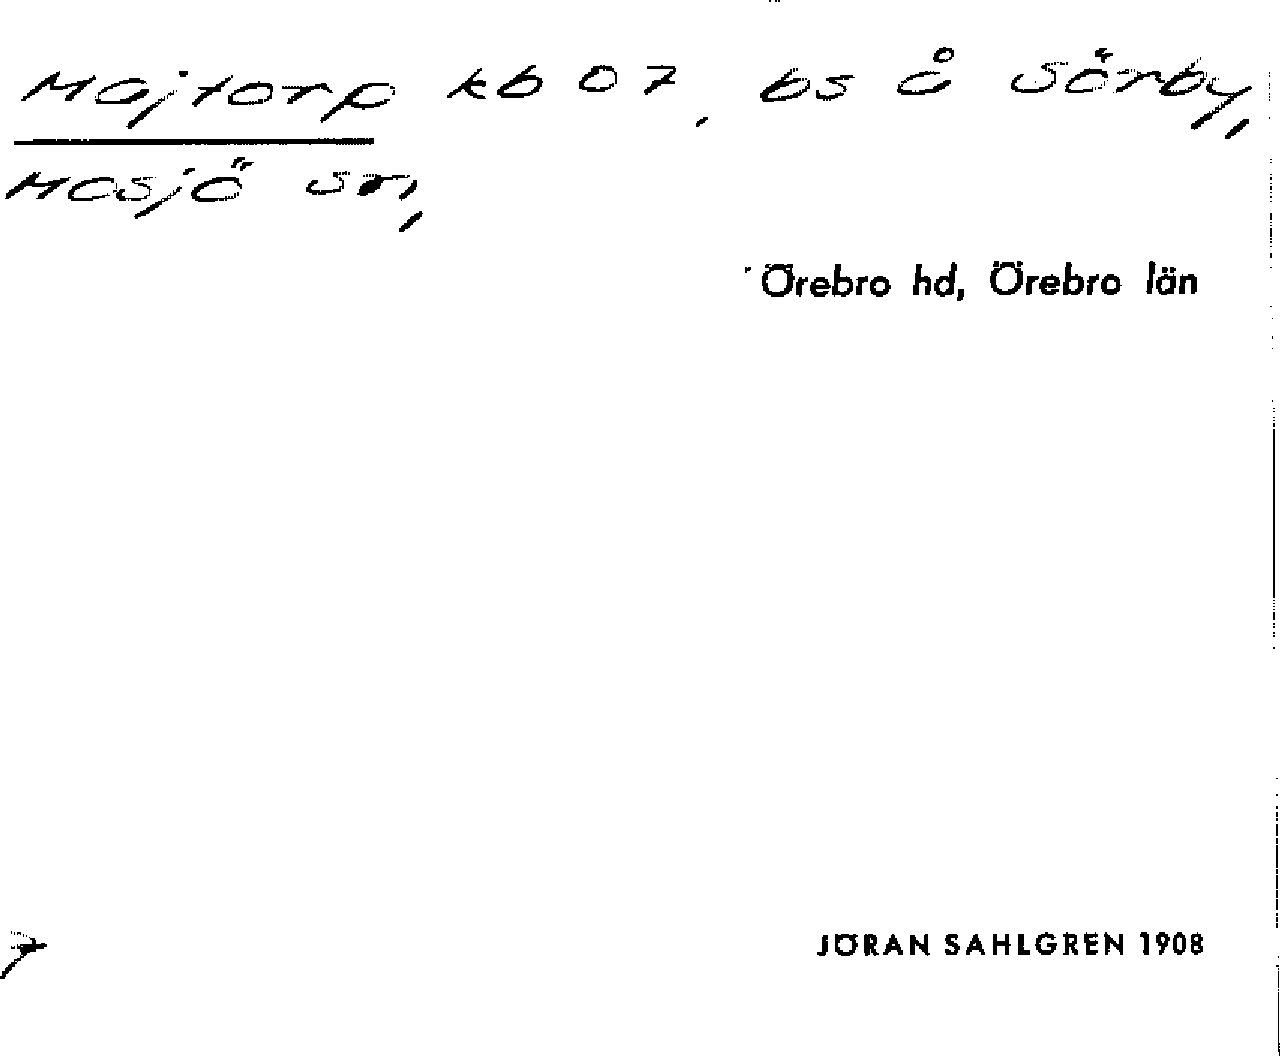 Majtorp kb 07, bs å Sörby,
Mosjö sn,
Örebro hd, Örebro län
JÖRAN SAHLGREN 1908